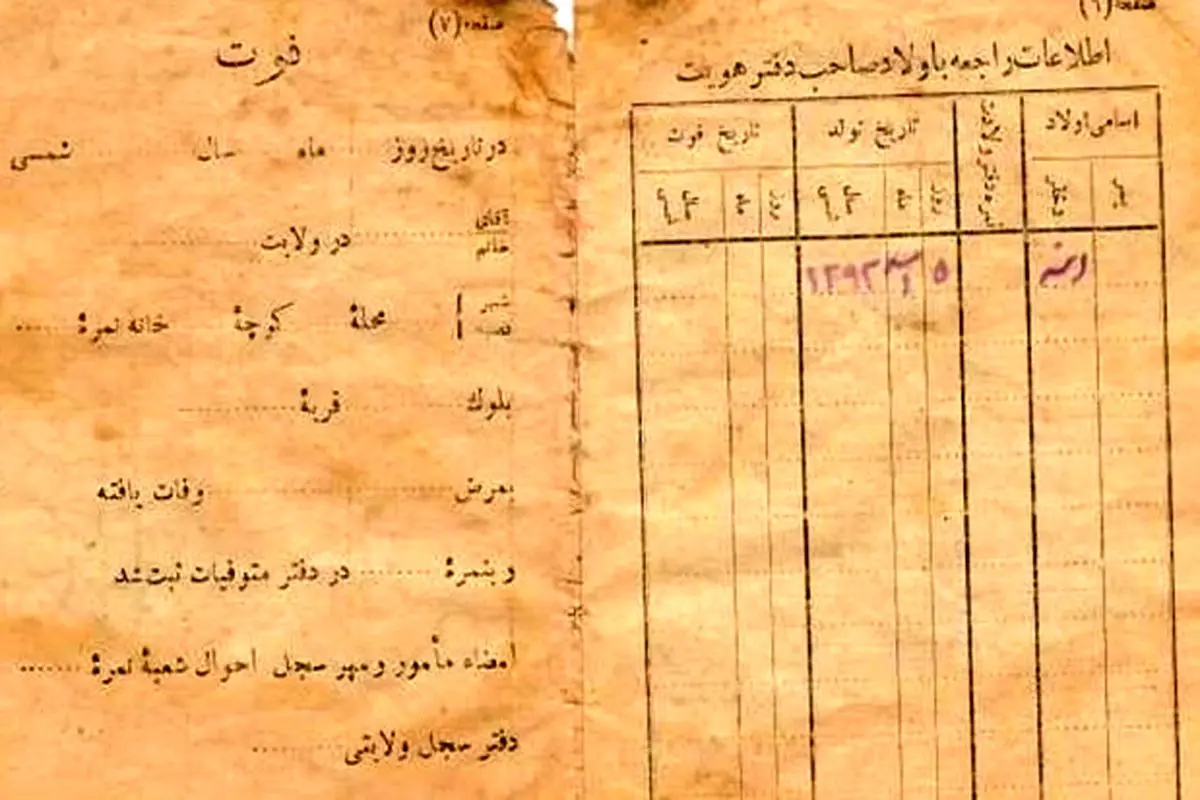 صفحه (۶)
اطلاعات راجعه باولاد صاحب دفتر هویت
اسامی اولاد
نمره دفتر ولادت
تاریخ تولد
تاریخ فوت
پسر
دختر
روز
ماه
سال شمسی
روز
ماه
سال شمسی
۵
۱۲۹۲
صفحه (۷)
فوت
در تاریخ روز ماه سال شمسی
آقای
خانم
در ولایت
شهر
قصبه
محلهٔ کوچهٔ خانه نمرهٔ
بلوک قریهٔ
بمرض وفات یافته
و بنمرهٔ در دفتر متوفیات ثبت شد
امضاء مأمور و مهر سجل احوال شعبهٔ نمرهٔ
دفتر سجل ولایتی